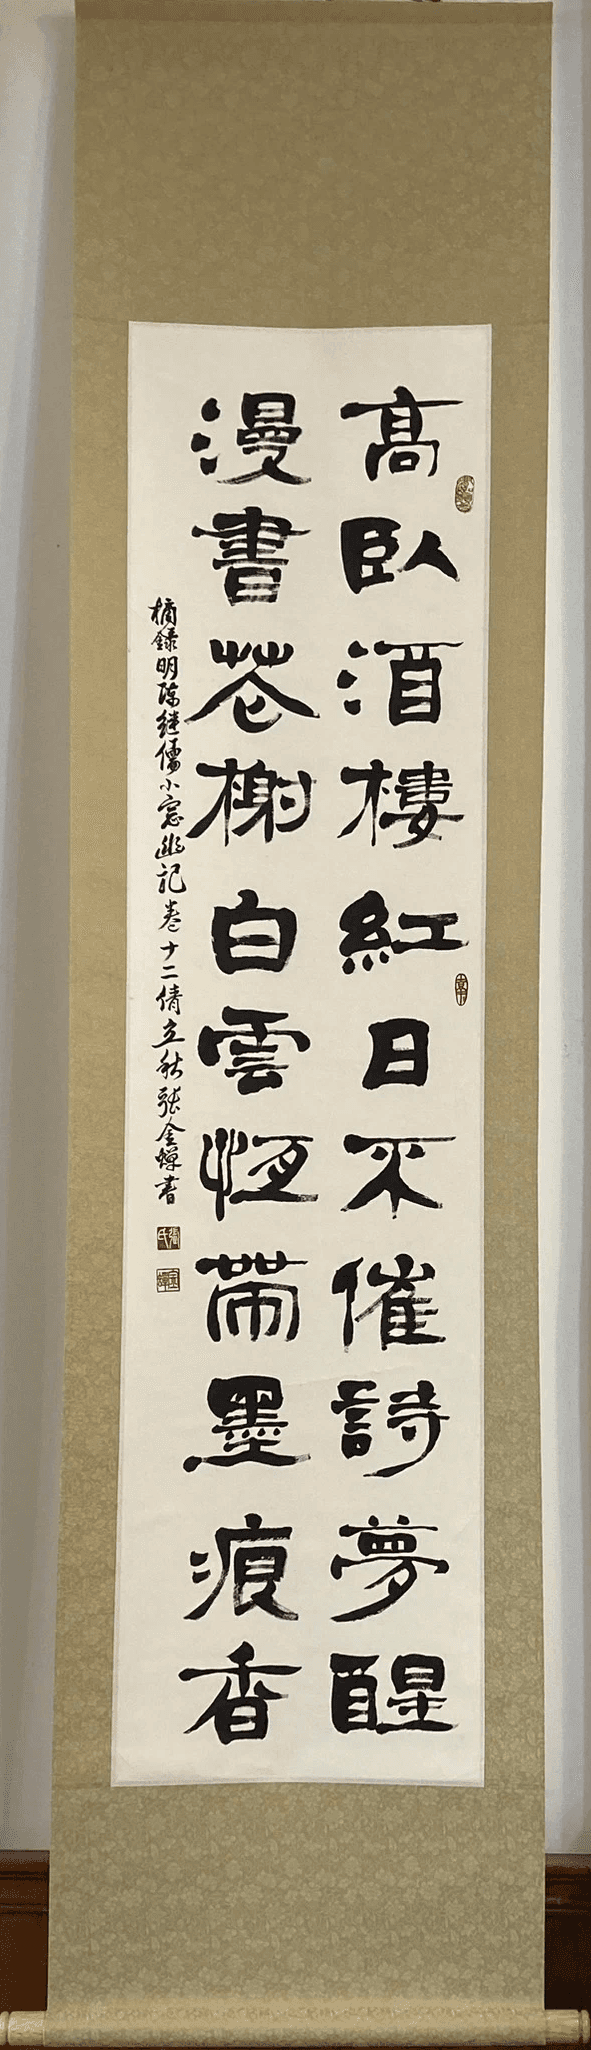 高臥酒樓紅日不催詩夢醒
漫書花榭白雲恆帶墨痕香
摘錄明陳繼儒小窗幽記卷十二倩立秋張金蟬書